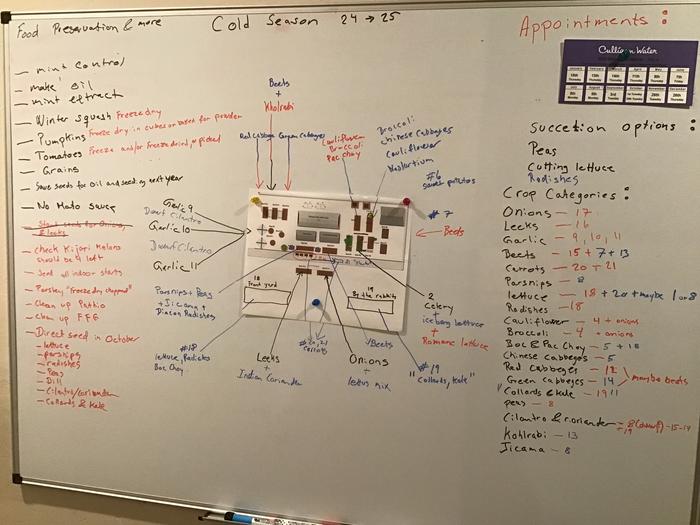 Food Preservation & more
Cold Season 24 → 25
Appointments :
Culligan Water
— mint control
— make oil
— mint extract
— Winter squash Freeze dry
— Pumpkins Freeze dry in cubes or baked for powder
— Tomatoes Freeze and/or Freeze dried, or picked
— Grains
— Save seeds for oil and seeding next year
— No Mato sauce
— check Kijori Melons should be 4 left
— Send all indoor starts
— Parsley, "freeze dry chopped"
— Clean up Pathio
— Clean up FFG
— Direct seed in October
— lettuce
— parsnips
— radishes
— Peas
— Dill
— Cilantro/coriander
— Collards & Kale
Beets
+
Kholrabi
Red Cabbage
Green Cabbages
Cauliflower
Broccoli
Pac Choy
Broccoli
Chinese Cabbages
Cauliflower
Nasturtium
#6
sweet potatoes
#7
Beets
Garlic 9
Dwarf Cilantro
Garlic 10
Dwarf Cilantro
Garlic 11
Parsnips + Peas
+ Jicama +
Diacon Radishes
18
Front yard
19
By the rabbits
2
Celery
+
iceberg lettuce
+
Romane lettuce
#18
lettuce, Radishes
Boc Choy
Leeks
+
Indian Coriander
#20, 21
Carrots
Beets
Onions
+
lettus mix
#19
"Collards, kale"
Succetion options :
Peas
Cutting lettuce
Radishes
Crop Categories :
Onions — 17
Leeks — 16
Garlic — 9, 10, 11
Beets — 15 + 7 + 13
Carrots — 20 + 21
Parsnips — 8
lettuce — 18 + 20 + maybe 1 or 8
Radishes — 18
Cauliflower — 4 + onions
Broccoli — 4 + onions
Boc & Pac Choy — 5 + 18
Chinese cabbages — 5
Red Cabbages — 12
Green cabbages — 14 > maybe beets
"Collards & kale — 19"
peas — 8
Cilantro & coriander — 8 (dwarf) — 15-17
+ 19
Kohlrabi — 13
Jicama — 8